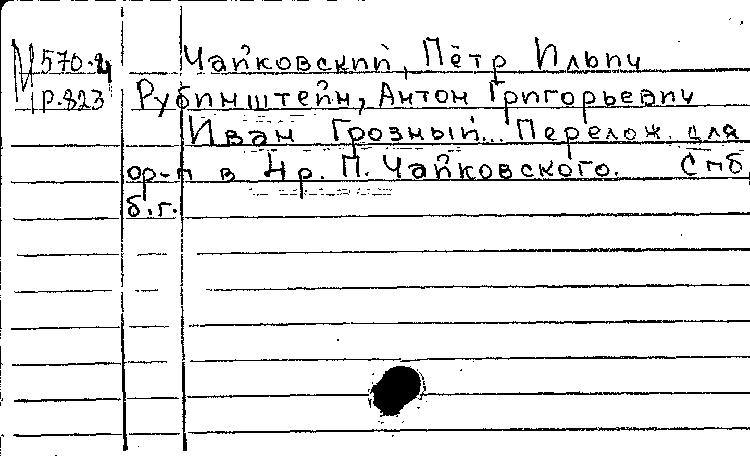 М 570-2 Чайковский, Пётр Ильич
Р.823 Рубинштейн, Антон Григорьевич
Иван Грозный... Перелож. для
ор-п в 4 р. П. Чайковского. Спб,
б.г.